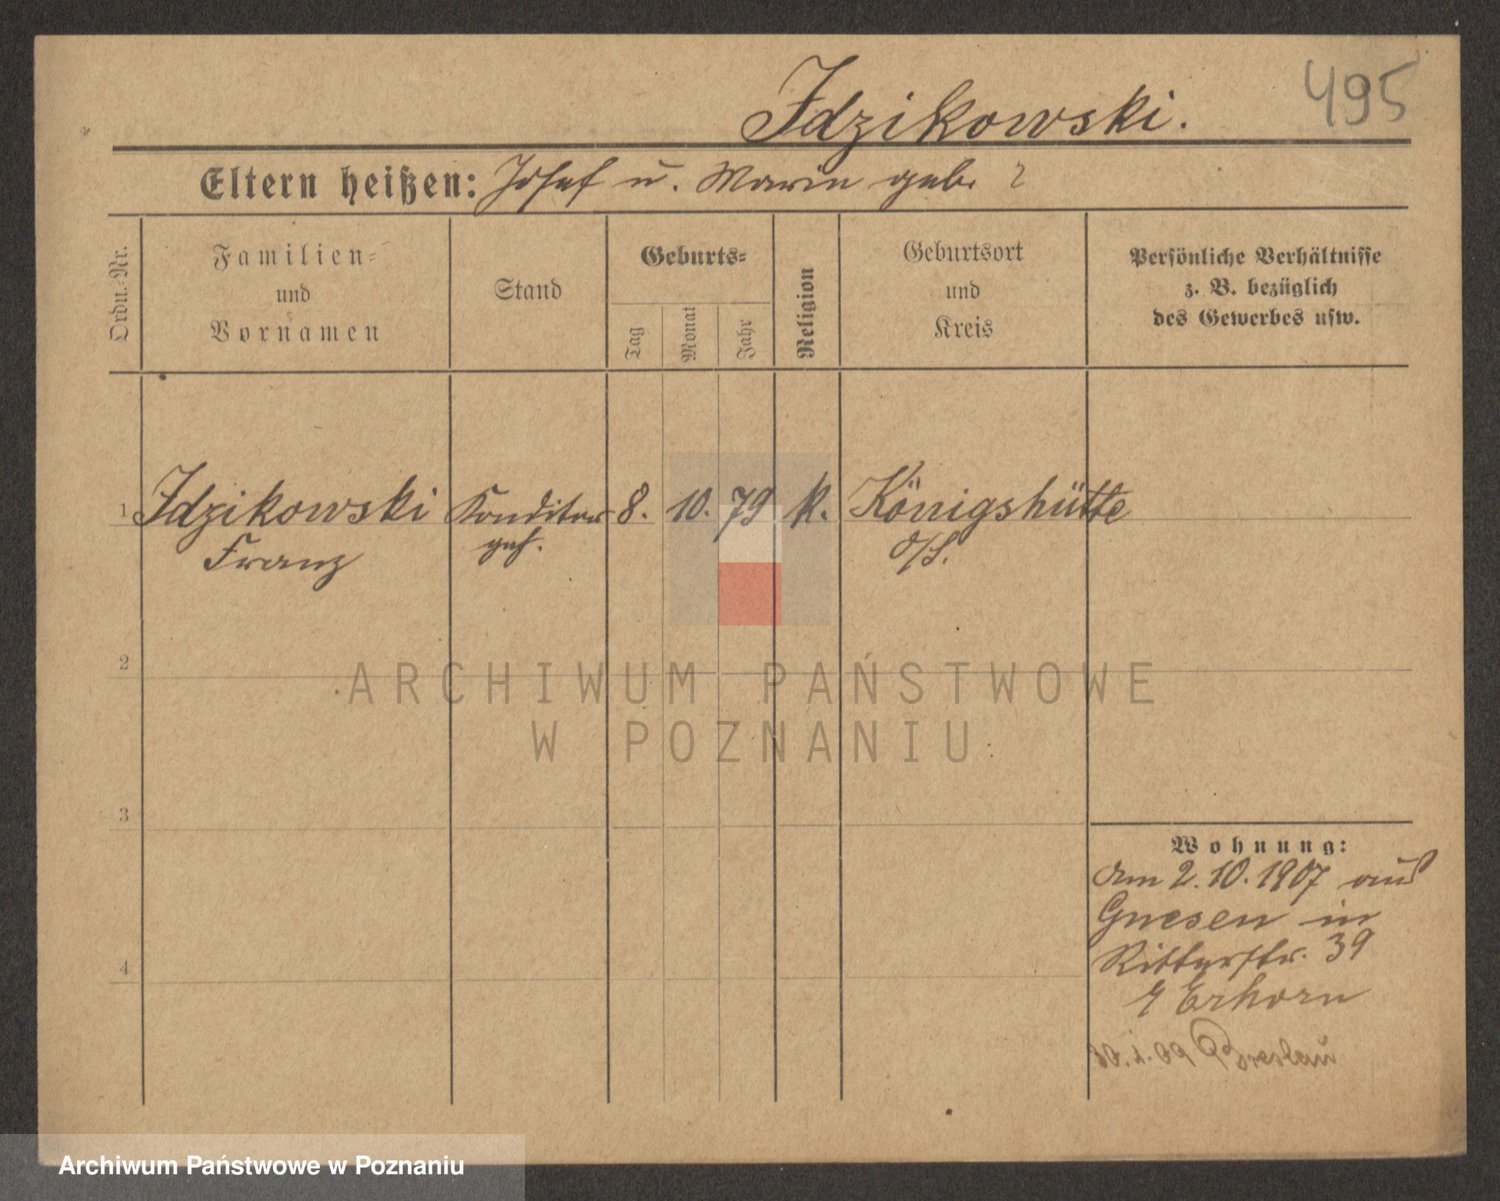 495
Idzikowski.
Eltern heißen: Josef u. Marie geb. ?
Ordn.-Nr.
Familien-
und
Vornamen
Stand
Geburts-
Tag
Monat
Jahr
Religion
Geburtsort
und
Kreis
Persönliche Verhältnisse
z. B. bezüglich
des Gewerbes usw.
1 Idzikowski Konditor 8. 10. 79 k. Königshütte
Franz geh. O/S.
2
ARCHIWUM PAŃSTWOWE
W POZNANIU
3
Wohnung:
Am 2.10.1907 aus
Gnesen in
Ritterstr. 39
4
Erhorn
30.1.09 Breslau
Archiwum Państwowe w Poznaniu